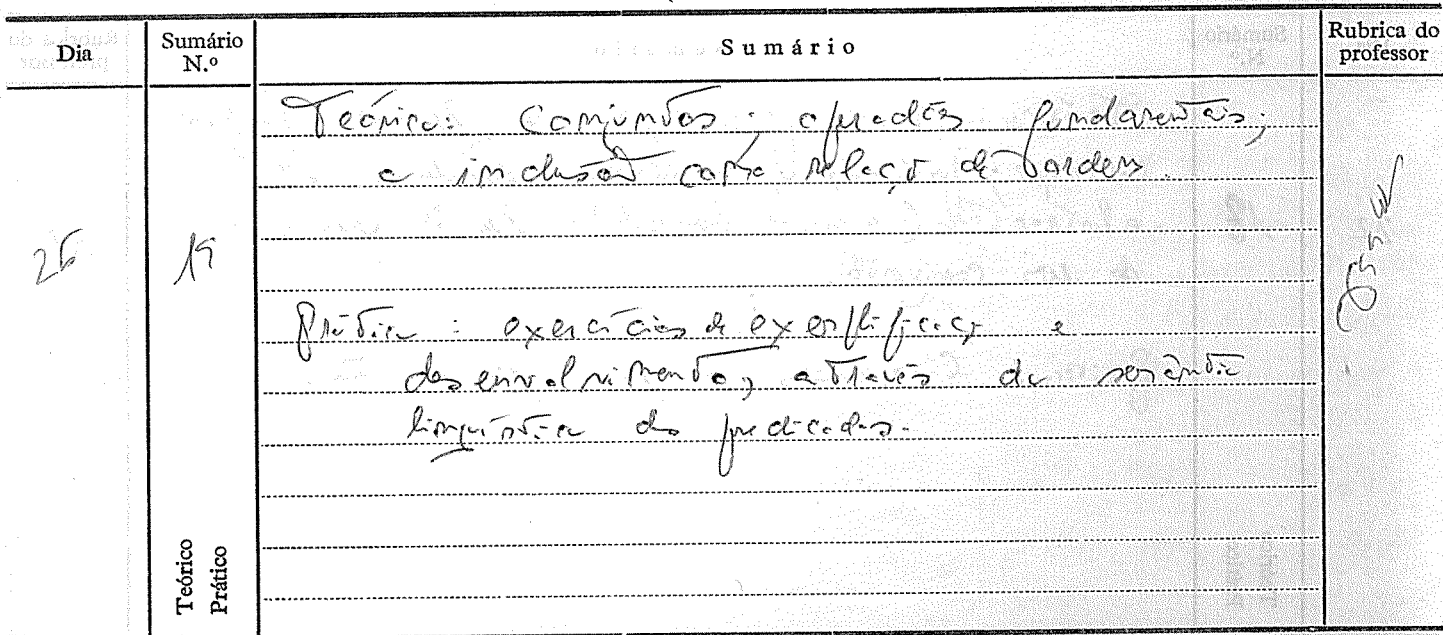 Dia
Sumário N.º
Sumário
Rubrica do professor
Teórica: Conjuntos; operações fundamentais;
a inclusão como relação de ordem.
26
19
Prática: exercícios de exemplificação e
desenvolvimento, através da semântica
linguística dos predicados.
Teórico
Prático